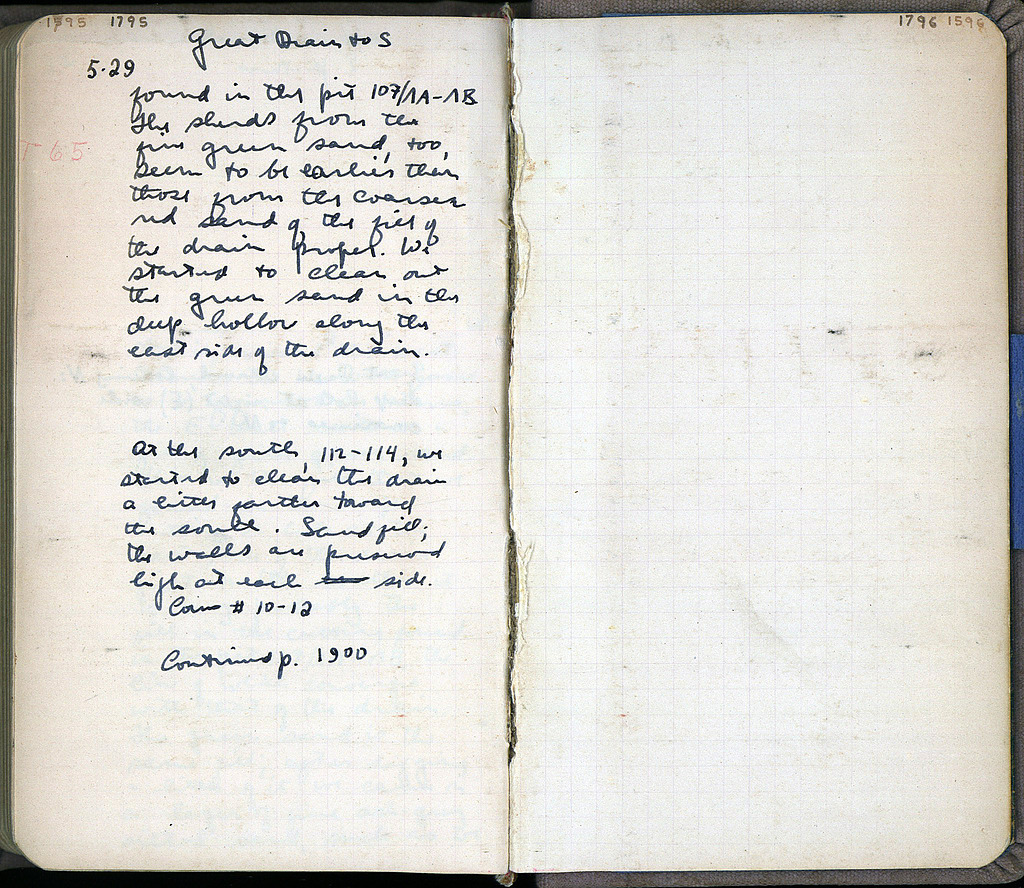 1595 1795
Great Drain to S
5·29
found in the pit 107/1A-1B
The sherds from the
T 65
fine green sand, too,
seem to be earlier than
those from the coarser
red sand of the fill of
the drain proper. We
started to clean out
the green sand in the
deep hollow along the
east side of the drain.
At the south, 112-114, we
started to clean the drain
a little farther toward
the south. Sand fill;
the walls are preserved
high at each side.
Coins # 10-12
Continued p. 1900
1796 1596